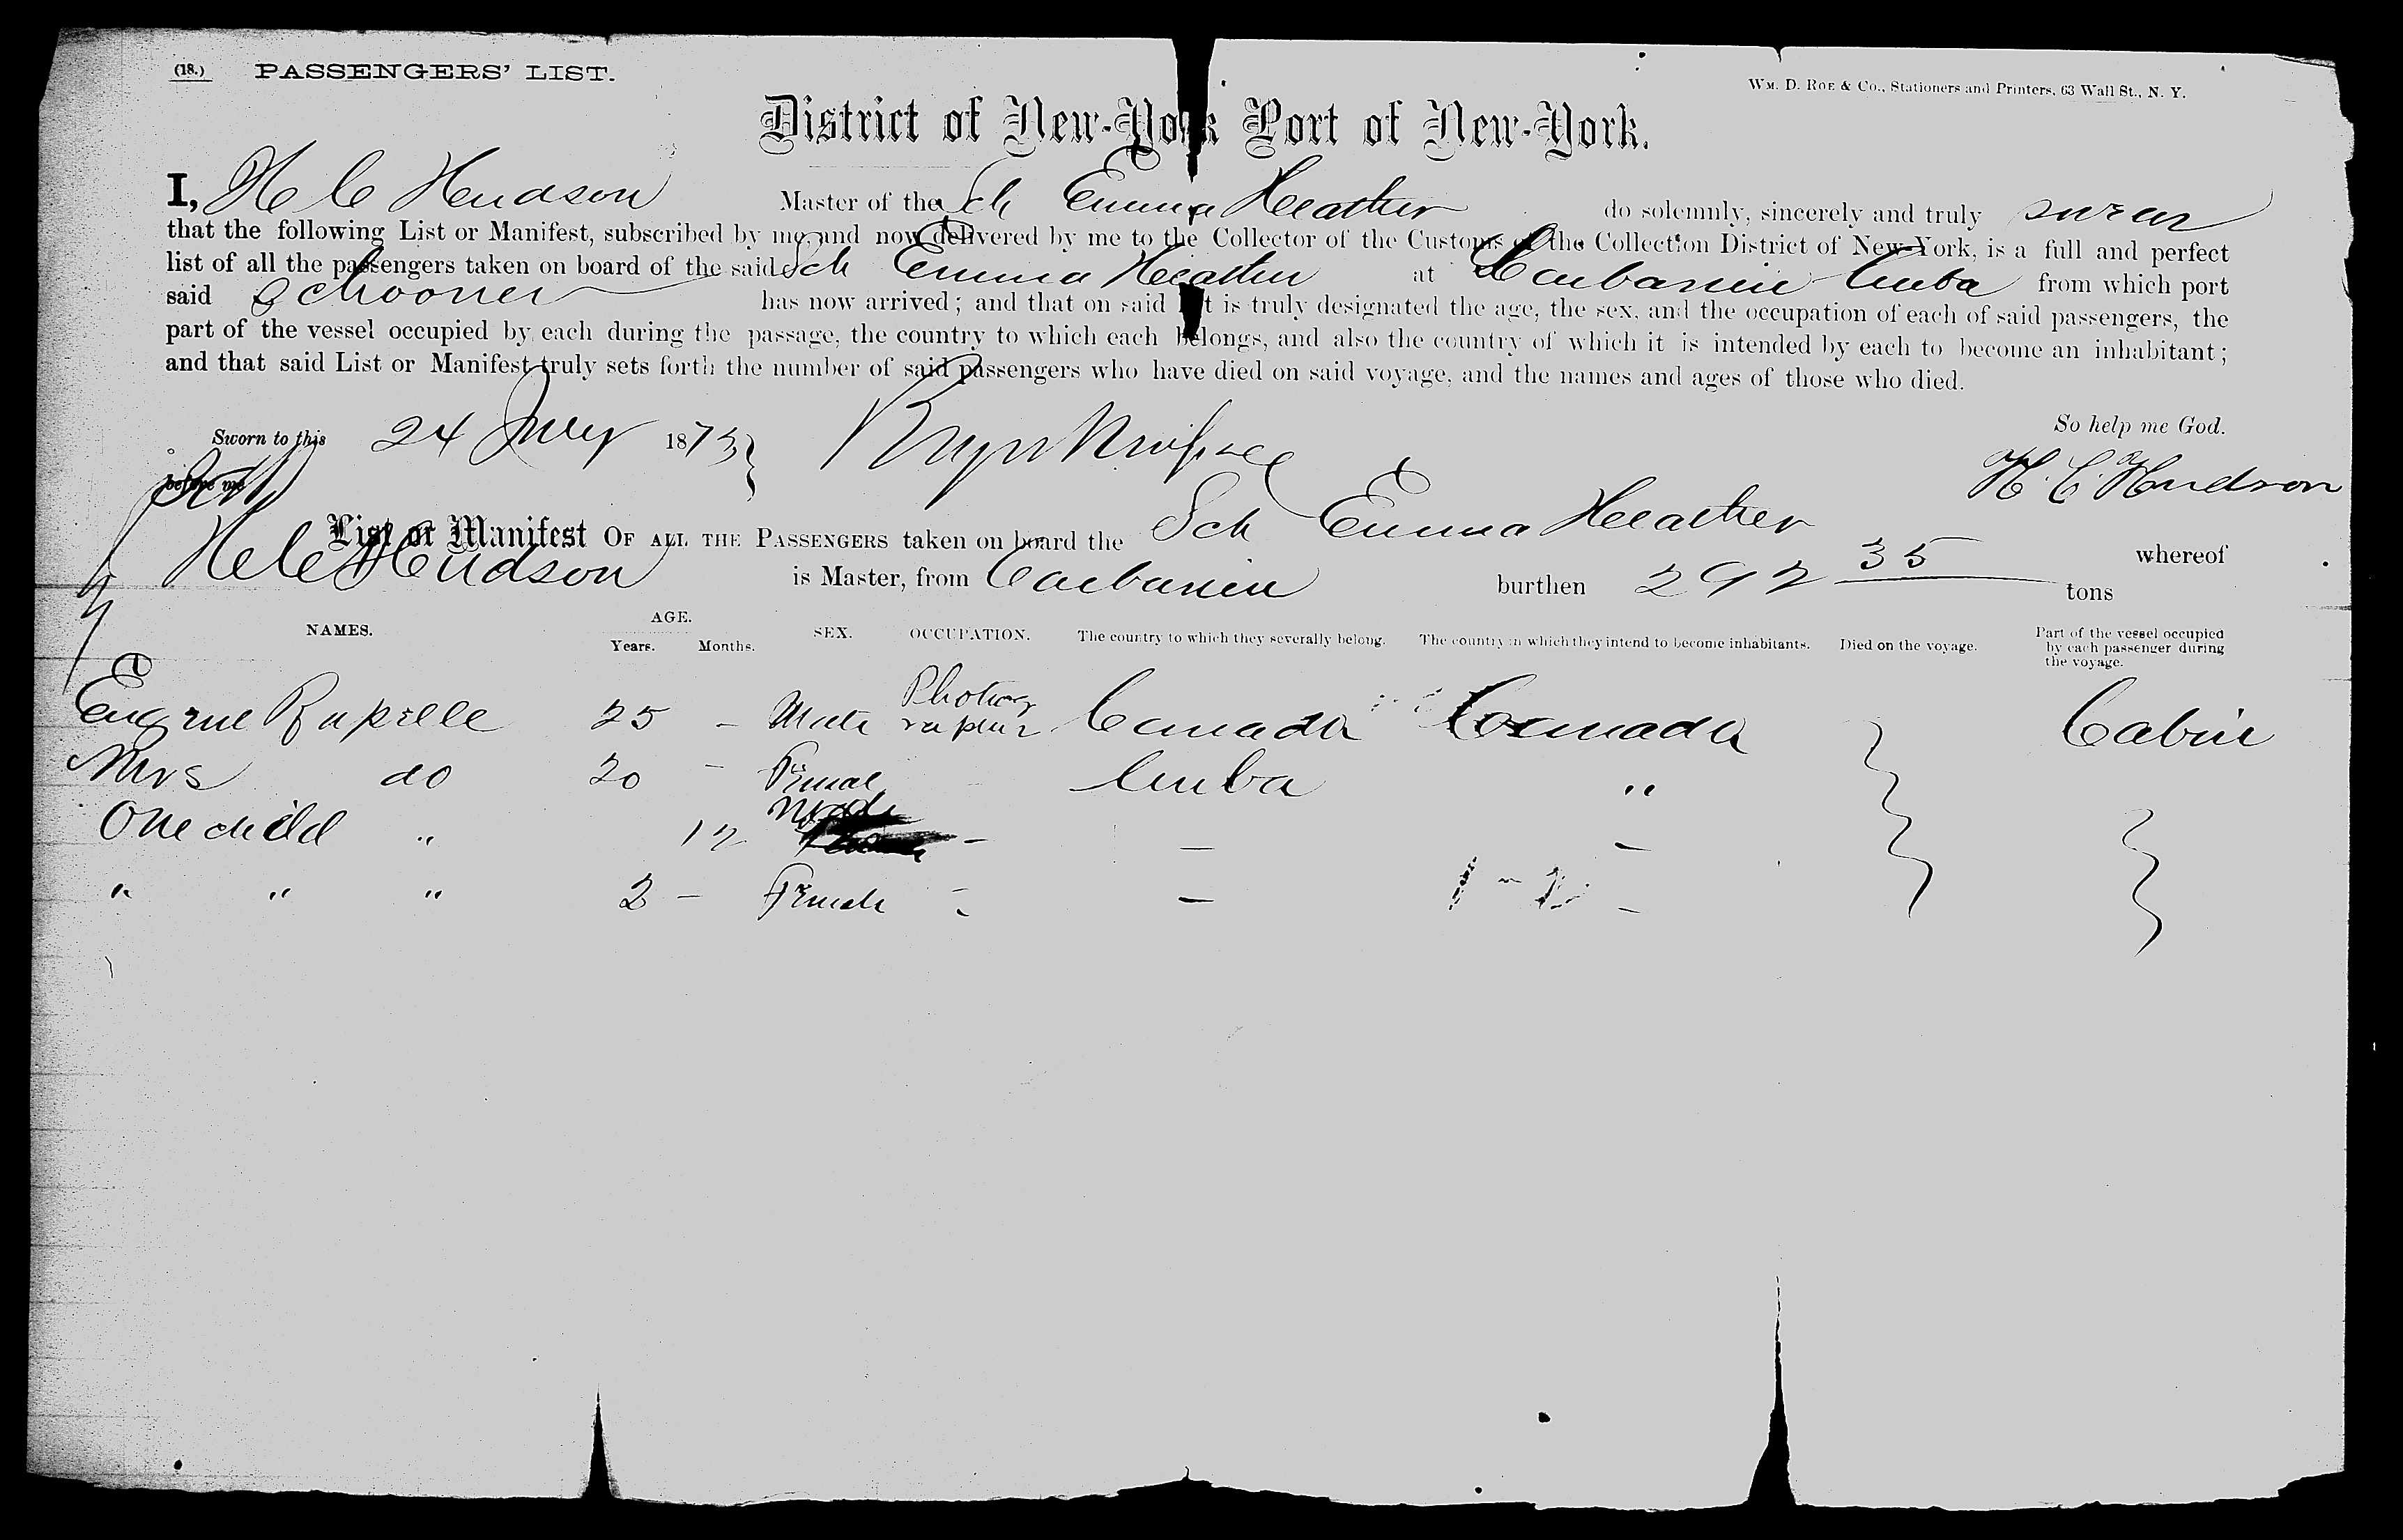 (18.) PASSENGERS' LIST.
Wm. D. Roe & Co., Stationers and Printers, 63 Wall St., N. Y.
District of New-York Port of New-York.
I, H C Hudson Master of the Sch Emma Heather do solemnly, sincerely and truly swear
that the following List or Manifest, subscribed by me, and now delivered by me to the Collector of the Customs of the Collection District of New-York, is a full and perfect
list of all the passengers taken on board of the said Sch Emma Heather at Caibarien Cuba from which port
said Schooner has now arrived; and that on said list is truly designated the age, the sex, and the occupation of each of said passengers, the
part of the vessel occupied by each during the passage, the country to which each belongs, and also the country of which it is intended by each to become an inhabitant;
and that said List or Manifest truly sets forth the number of said passengers who have died on said voyage, and the names and ages of those who died.
So help me God.
Sworn to this 24 1873
before me
H. C. Hudson
List or Manifest OF ALL THE PASSENGERS taken on board the Sch Emma Heather whereof
H C Hudson is Master, from Caibarien burthen 292 35 tons
NAMES. AGE. Years. Months. SEX. OCCUPATION. The country to which they severally belong. The country in which they intend to become inhabitants. Died on the voyage. Part of the vessel occupied by each passenger during the voyage.
Eugene 25 - Male Photographer Canada Canada Cabin
Mrs do 20 - Femal Cuba "
One child " 12 Male - - -
" " " 2 - Female - - -